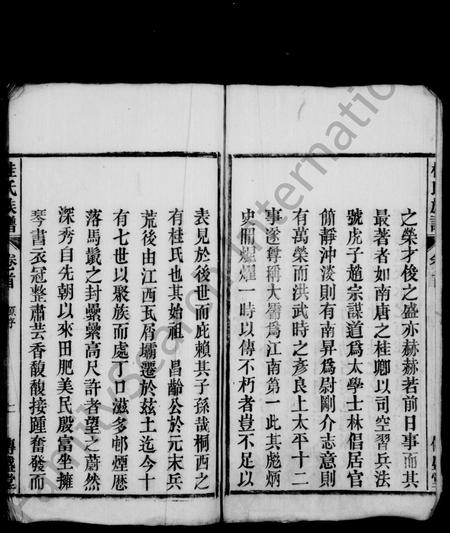 之榮才俊之盛亦赫赫著前日事而其
最著者如南唐之桂卿以司空習兵法
號虎子趙宗謀道爲太學士林倡居官
節靜沖淡則有南昇爲尉剛介志意則
有萬榮而洪武時之彥良上太平十二
事遂尊稱大儒爲江南第一此其彪炳
史冊燿燿一時以傳不朽者豈不足以
表見於後世而庇賴其子孫哉桐西之
有桂氏也其始祖　昌齡公於元末兵
荒後由江西瓦屑壩遷於茲土迄今十
有七世以聚族而處丁口滋多邨煙歷
落馬鬣之封纍纍高尺許者望之蔚然
深秀自先朝以來田肥美民殷富坐擁
琴書衣冠整肅芸香馥馥接踵奮發而
桂氏族譜
卷首
原序
上
傳盛堂
FamilySearch International